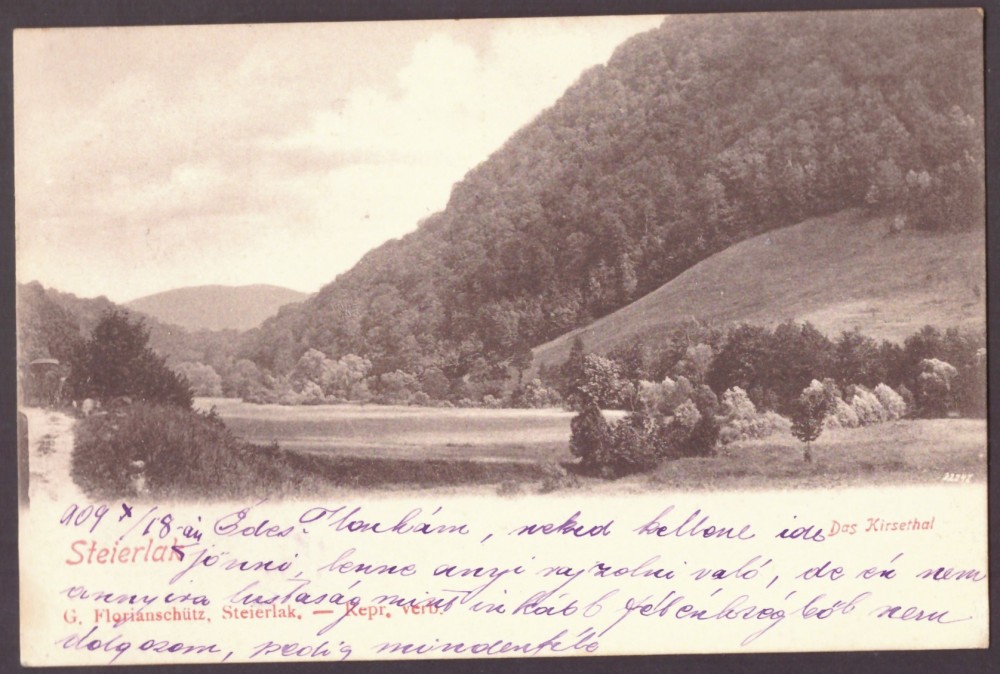 909 X/18-án Édes Ilonkám, neked kellene ide
Das Kirsethal
Steierlak
jönni, lenne anyi rajzolni való, de én nem
annyira lustaság mint inkább félénkségből nem
G. Floriánschütz, Steierlak. — Repr. verb.
dolgozom, pedig mindenféle